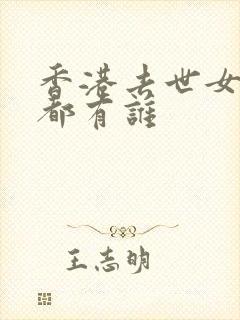 香港去世女
都有誰
王志明